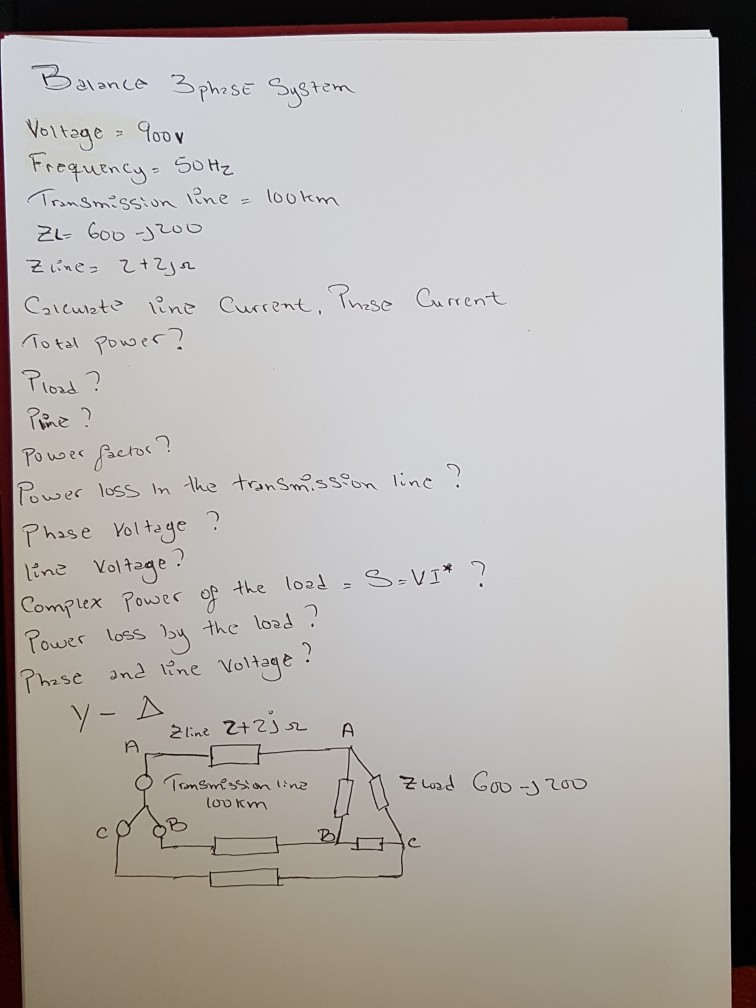 Balance 3phase System
Voltage = 900v
Frequency = 50Hz
Transmission line = 100km
ZL= 600 -j200
Zline= 2+2jΩ
Calculate line Current, Phase Current
Total power?
Pload?
Pline?
Power factor?
Power loss in the transmission line?
Phase Voltage?
line Voltage?
Complex Power of the load = S=VI* ?
Power loss by the load?
Phase and line Voltage?
Y - Δ
Zline 2+2jΩ
A
A
Transmission line
100km
Zload 600-j200
C
B
B
C